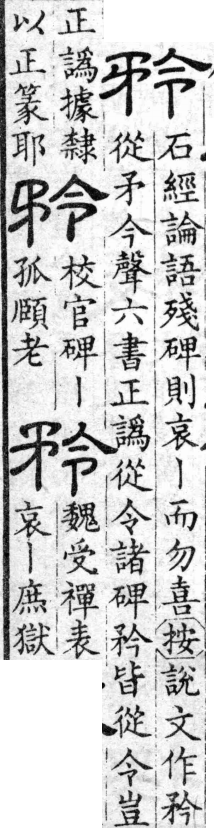 矝
石經論語殘碑則哀丨而勿喜按說文作矜
從矛今聲六書正譌從令諸碑矜皆從令豈
正譌據隸
以正篆耶
矝
校官碑丨
孤頤老
矝
魏受禪表
哀丨庶獄